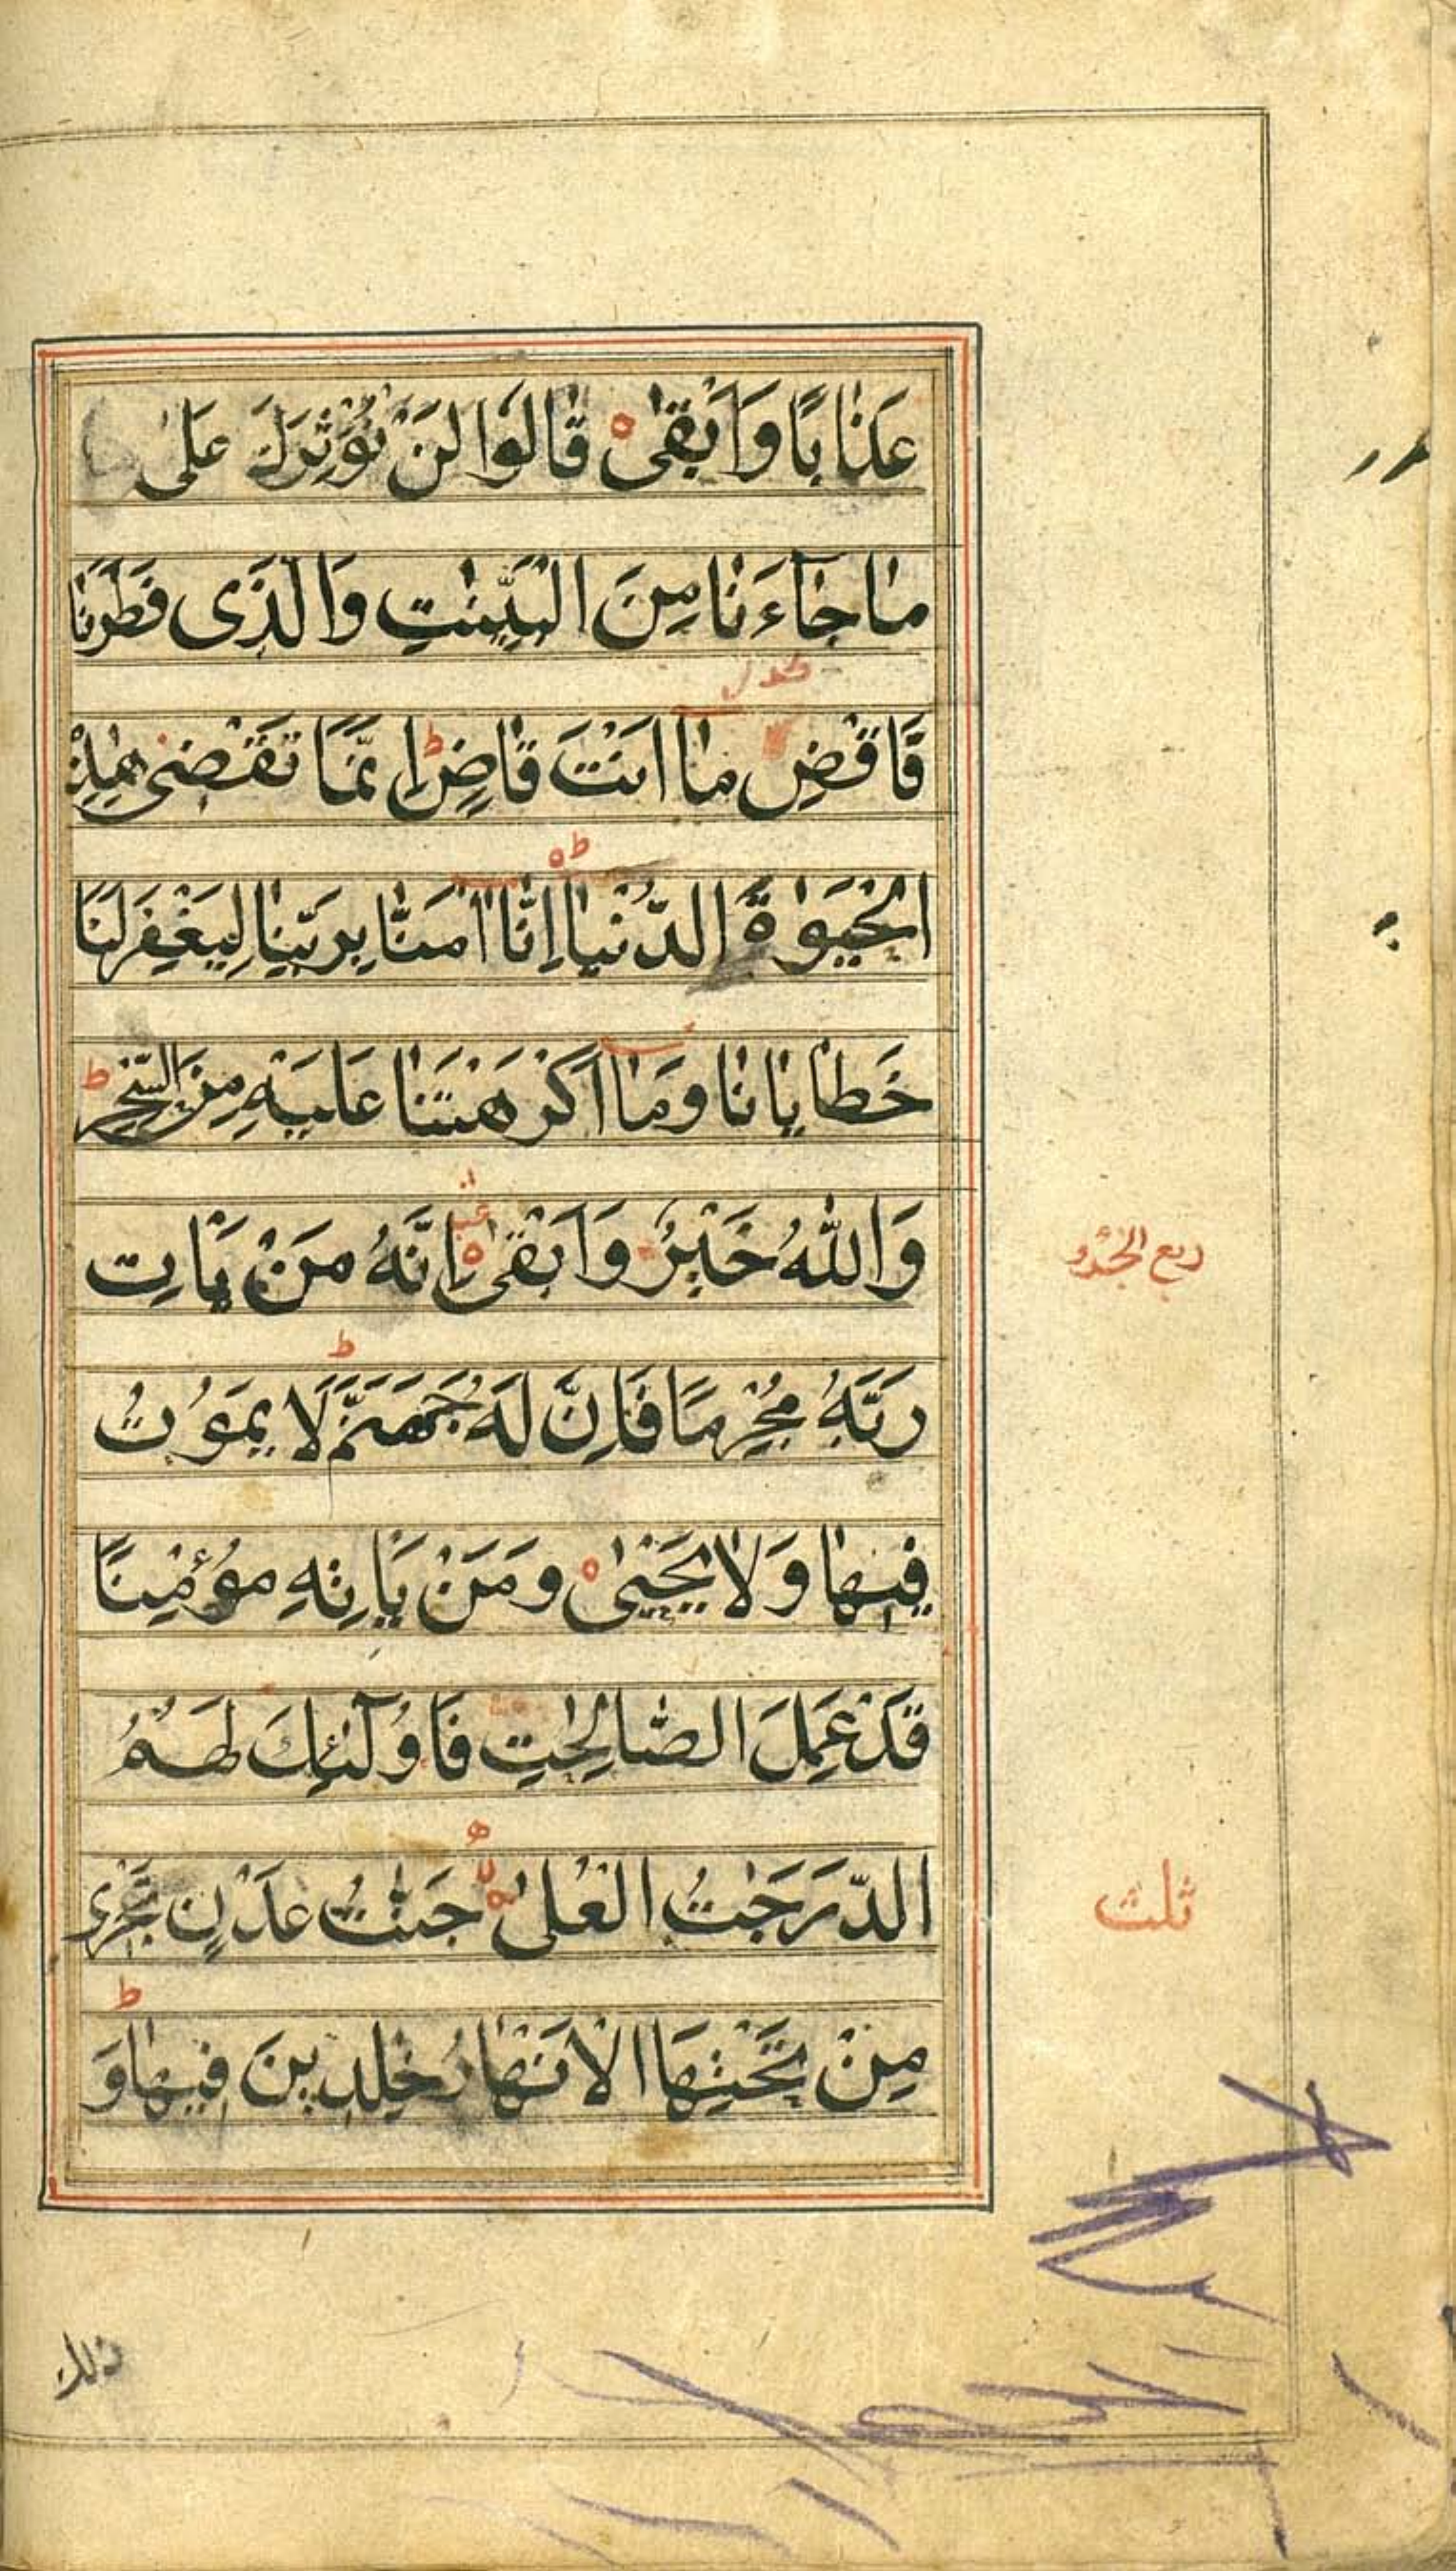 عَذَابًا وَاَبْقٰى ه قَالُوْا لَنْ نُؤْثِرَكَ عَلٰى
مَا جَآءَنَا مِنَ الْبَيِّنٰتِ وَالَّذِى فَطَرَنَا
فَاقْضِ مَآ اَنْتَ قَاضٍ ط اِنَّمَا تَقْضِىْ هٰذِهِ
الْحَيٰوةَ الدُّنْيَا ط ه اِنَّآ اٰمَنَّا بِرَبِّنَا لِيَغْفِرَ لَنَا
خَطَايَانَا وَمَآ اَكْرَهْتَنَا عَلَيْهِ مِنَ السِّحْرِ ط
وَاللّٰهُ خَيْرٌ وَاَبْقٰى ه اِنَّهُ مَنْ يَاْتِ
رَبَّهُ مُجْرِمًا فَاِنَّ لَهُ جَهَنَّمَ ط لَا يَمُوْتُ
فِيْهَا وَلَا يَحْيٰى ه وَمَنْ يَاْتِهِ مُؤْمِنًا
قَدْ عَمِلَ الصَّالِحٰتِ فَاُولٰٓئِكَ لَهُمُ
الدَّرَجٰتُ الْعُلٰى جَنّٰتُ عَدْنٍ تَجْرِى
مِنْ تَحْتِهَا الْاَنْهَارُ خٰلِدِيْنَ فِيْهَا ط وَ
ربع الجزو
ثلث
ذلك